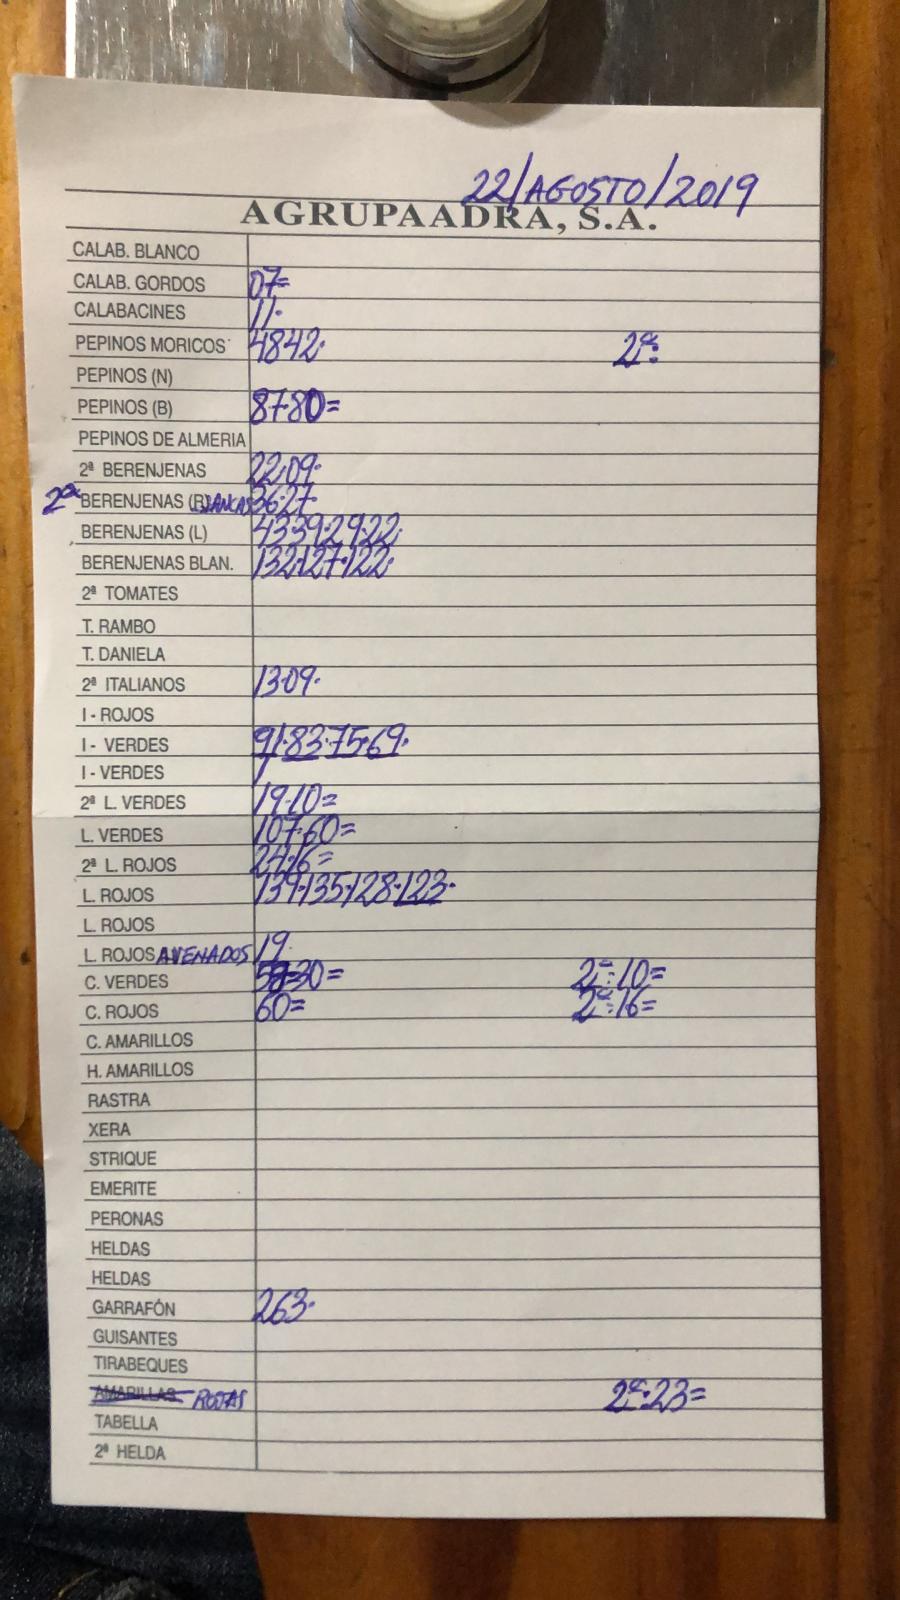 22/AGOSTO/2019
AGRUPAADRA, S.A.
CALAB. BLANCO
CALAB. GORDOS 07=
CALABACINES 11·
PEPINOS MORICOS 4842· 2ª:
PEPINOS (N)
PEPINOS (B) 87·80=
PEPINOS DE ALMERIA
2ª BERENJENAS 22·09·
2ª BERENJENAS (BLANCAS 36·27·
BERENJENAS (L) 43·39·29·22·
BERENJENAS BLAN. 132·127·122·
2ª TOMATES
T. RAMBO
T. DANIELA
2ª ITALIANOS 13·09·
I - ROJOS
I - VERDES 91·83·75·69·
I - VERDES
2ª L. VERDES 19·10=
L. VERDES 107·60=
2ª L. ROJOS 24·16=
L. ROJOS 139·135·128·123·
L. ROJOS
L. ROJOS AVENADOS 19·
C. VERDES 30= 2ª:10=
C. ROJOS 60= 2ª:16=
C. AMARILLOS
H. AMARILLOS
RASTRA
XERA
STRIQUE
EMERITE
PERONAS
HELDAS
HELDAS
GARRAFÓN 263·
GUISANTES
TIRABEQUES
AMARILLAS ROJAS 2ª:23=
TABELLA
2ª HELDA